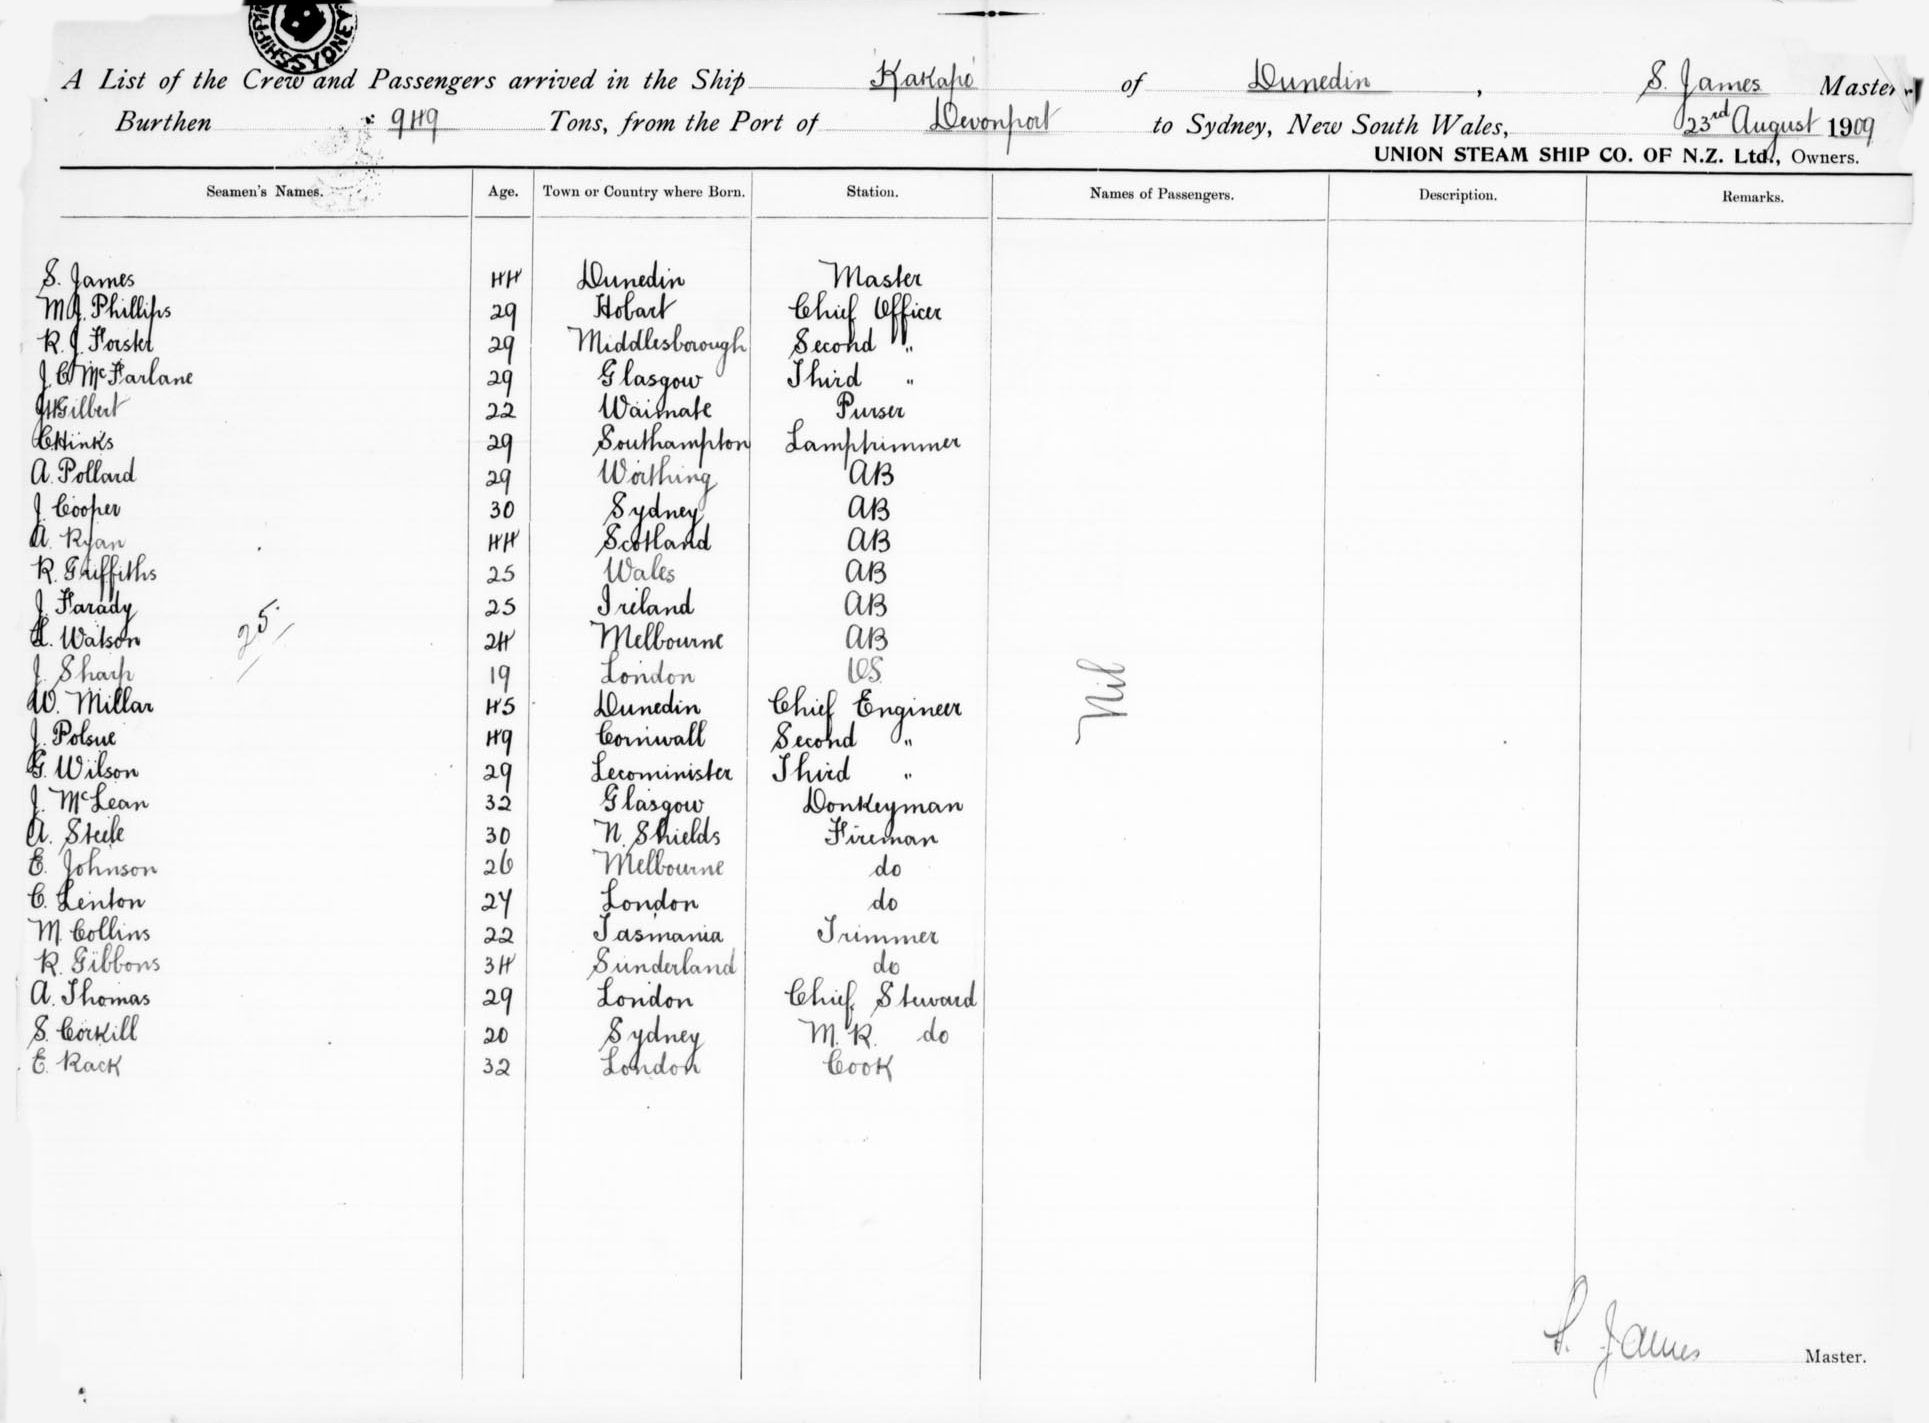 SHIPPI SYDNEY
A List of the Crew and Passengers arrived in the Ship Kakapo of Dunedin, S. James Master
Burthen 949 Tons, from the Port of Devonport to Sydney, New South Wales, 23rd August 1909
UNION STEAM SHIP CO. OF N.Z. Ltd., Owners.
Seamen's Names. Age. Town or Country where Born. Station. Names of Passengers. Description. Remarks.
S. James 44 Dunedin Master
M J. Phillips 29 Hobart Chief Officer
R. J. Forster 29 Middlesborough Second "
J. C. McFarlane 29 Glasgow Third "
J H Gilbert 22 Waimate Purser
C. Hinks 29 Southampton Lamptrimmer
A. Pollard 29 Worthing AB
J. Cooper 30 Sydney AB
A. Ryan 44 Scotland AB
R. Griffiths 25 Wales AB
J. Farady 25 Ireland AB
H. Watson 24 Melbourne AB
25
J. Sharp 19 London OS
Nil
W. Millar 45 Dunedin Chief Engineer
J. Polsue 49 Cornwall Second "
G. Wilson 29 Lecominister Third "
J. McLean 32 Glasgow Donkeyman
A. Steele 30 N. Shields Fireman
E. Johnson 26 Melbourne do
C. Lenton 24 London do
M. Collins 22 Tasmania Trimmer
R. Gibbons 34 Sunderland do
A. Thomas 29 London Chief Steward
S. Corkill 20 Sydney M. R. do
E. Rack 32 London Cook
S. James Master.